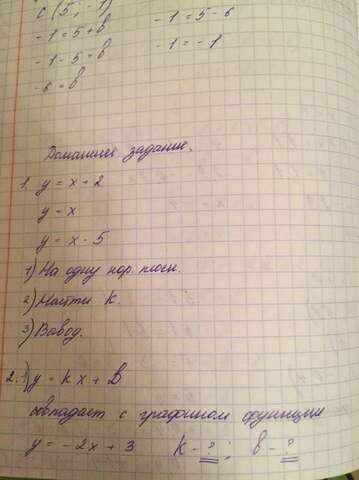 С (5 ; -1)
-1 = 5 + в
-1 - 5 = в
-6 = в
-1 = 5 - 6
-1 = -1
Домашнее задание.
1. y = x + 2
y = x
y = x - 5
1) На одну кор. плоск.
2) Найти K.
3) Вывод.
2. 1) y = k x + в
совпадает с графиком функции
y = -2x + 3 K - ? ; в - ?